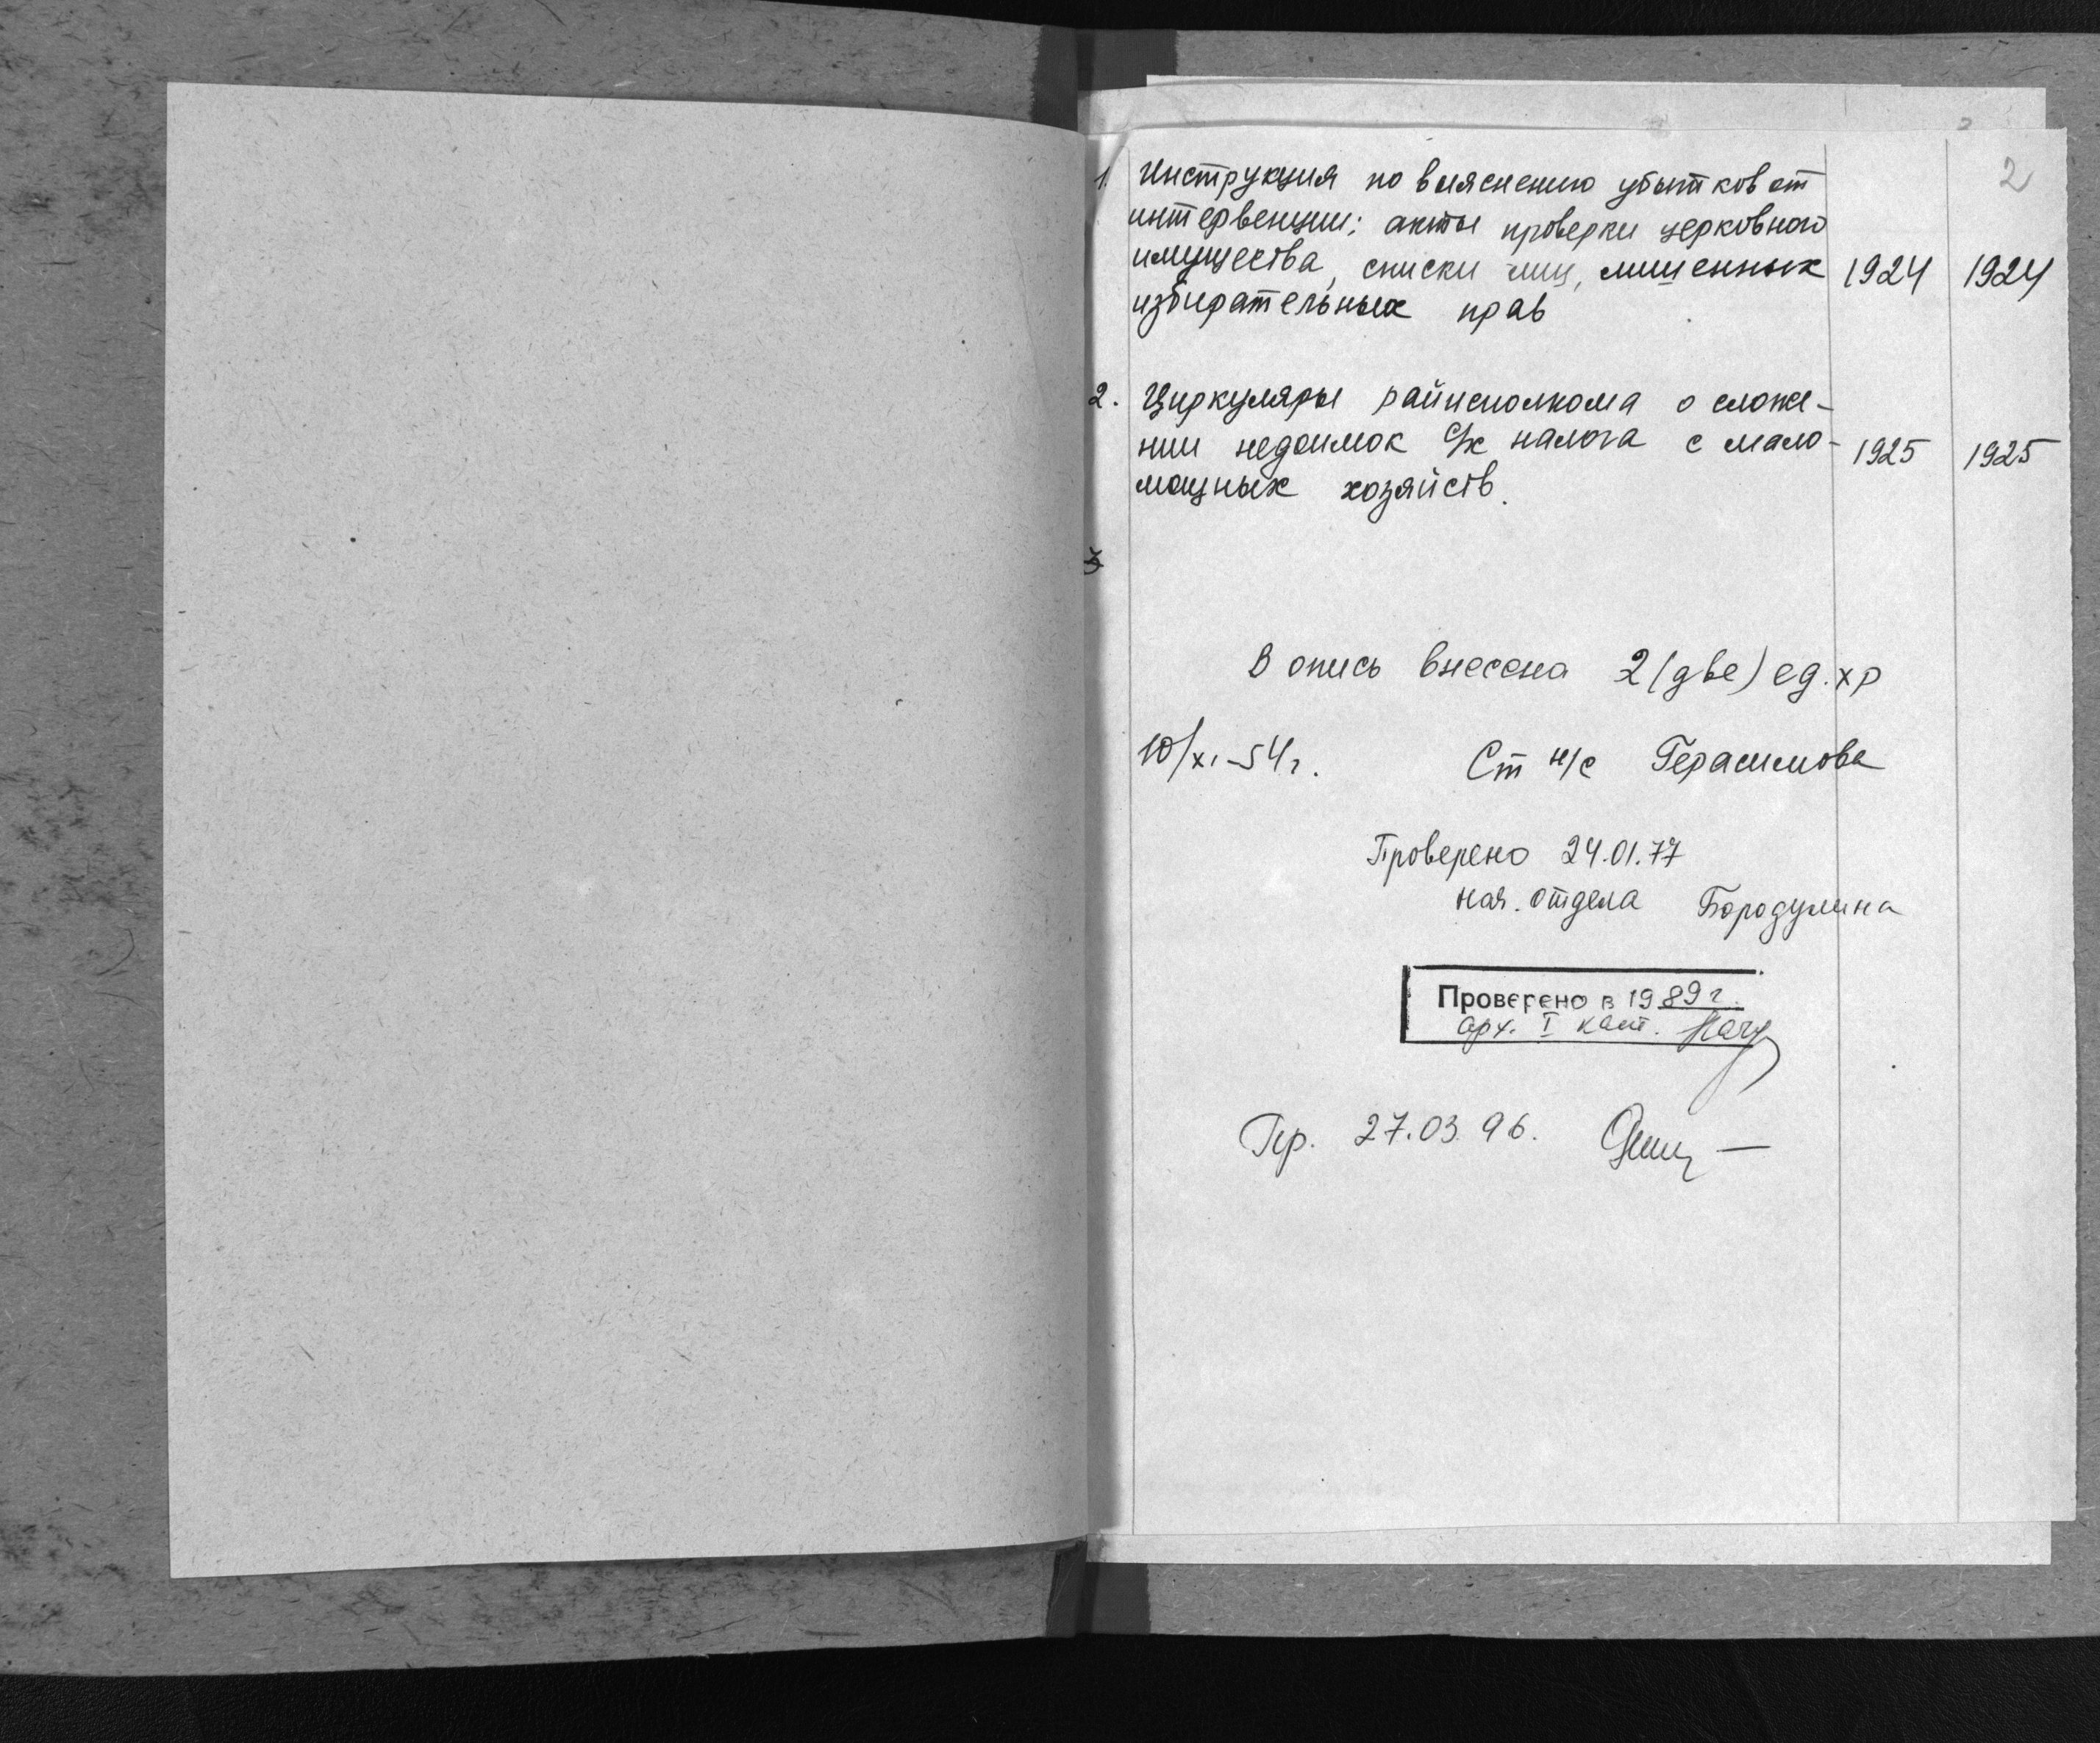 2
1. Инструкция по выяснению убытков от
интервенции; акты проверки церковного
имущества, списки лиц, лишенных 1924 1924
избирательных прав
2. Циркуляры райисполкома о сложе-
нии недоимок с/х налога с мало- 1925 1925
мощных хозяйств.
3
В опись внесена 2 (две) ед. хр
10/XI-54 г. Ст н/с Герасимова
Проверено 24.01.77
нач. отдела Бородулина
Проверено в 1989 г.
арх. I кат.
Пр. 27.03.96.